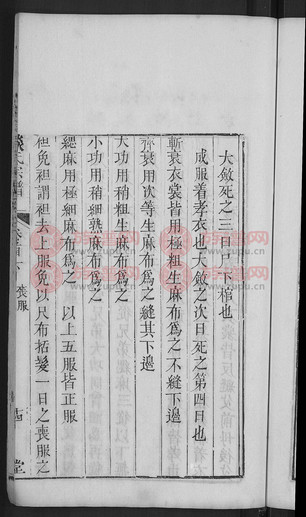 大斂死之三日也下棺也
成服着孝衣也大斂之次日死之第四日也
斬衰衣裳皆用極粗生麻布爲之不縫下邊
齊衰用次等生麻布爲之縫其下邊
大功用稍粗熟麻布爲之
小功用稍細熟麻布爲之
緦麻用極細麻布爲之 以上五服皆正服
袒免袒謂袒去上服免以尺布括髮一日之喪服之
氏宗譜
喪服